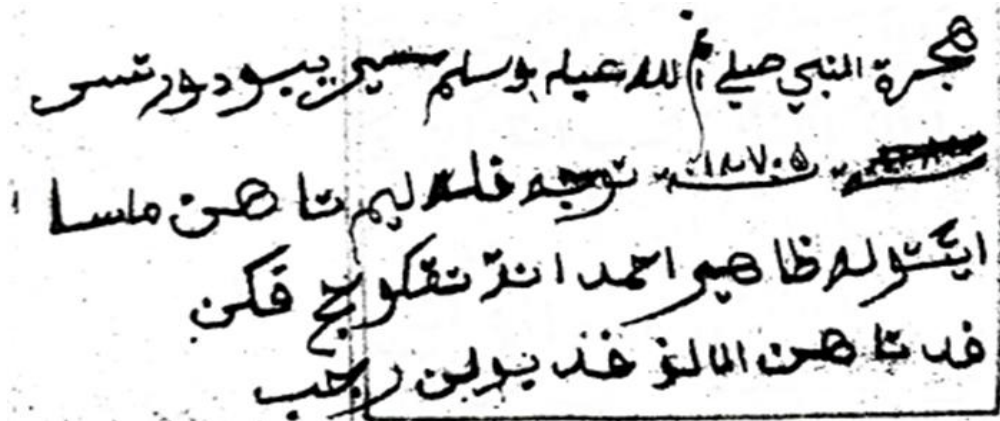 هجرة النبي صلي الله عليه وسلم سريبو دور تسى
سنه توجه فله ليم تاهن ماسا
ايتوله ظاهير احمد انق تڠكو حج
فد تاهن فد بولن رجب